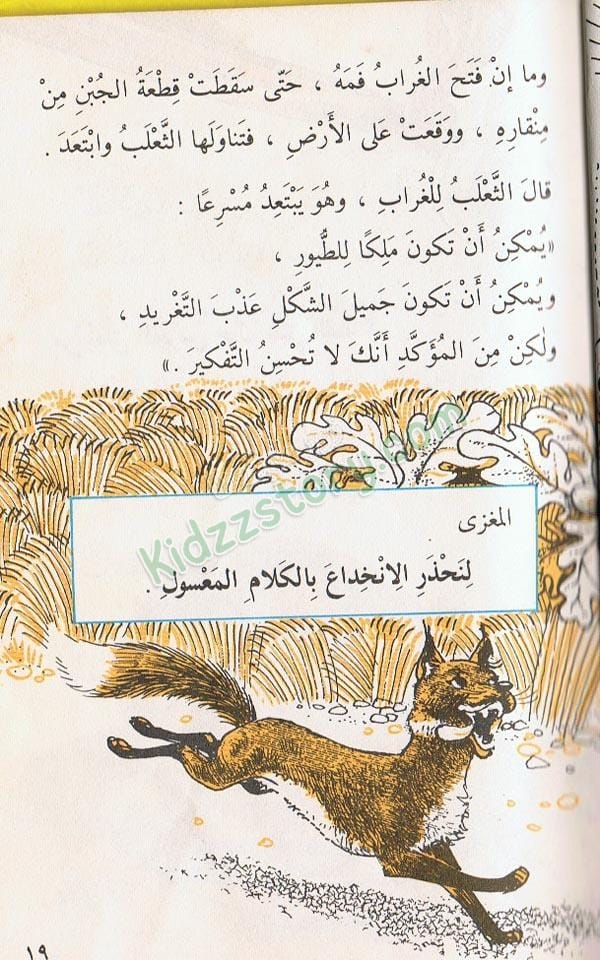 وما إنْ فَتَحَ الغُرابُ فَمَهُ ، حَتّى سَقَطَتْ قِطْعَةُ الجُبْنِ مِنْ
مِنْقارِهِ ، ووَقَعَتْ عَلى الأَرْضِ ، فَتَناوَلَها الثَّعْلَبُ وابْتَعَدَ .
قالَ الثَّعْلَبُ لِلْغُرابِ ، وهُوَ يَبْتَعِدُ مُسْرِعًا :
«يُمْكِنُ أَنْ تَكونَ مَلِكًا لِلطُّيورِ ،
ويُمْكِنُ أَنْ تَكونَ جَميلَ الشَّكْلِ عَذْبَ التَّغْريدِ ،
ولٰكِنْ مِنَ المُؤَكَّدِ أَنَّكَ لا تُحْسِنُ التَّفْكيرَ .»
المَغزى
لِنَحْذَرِ الِانْخِداعَ بِالكَلامِ المَعْسولِ .
Kidzzstory.com
١٩